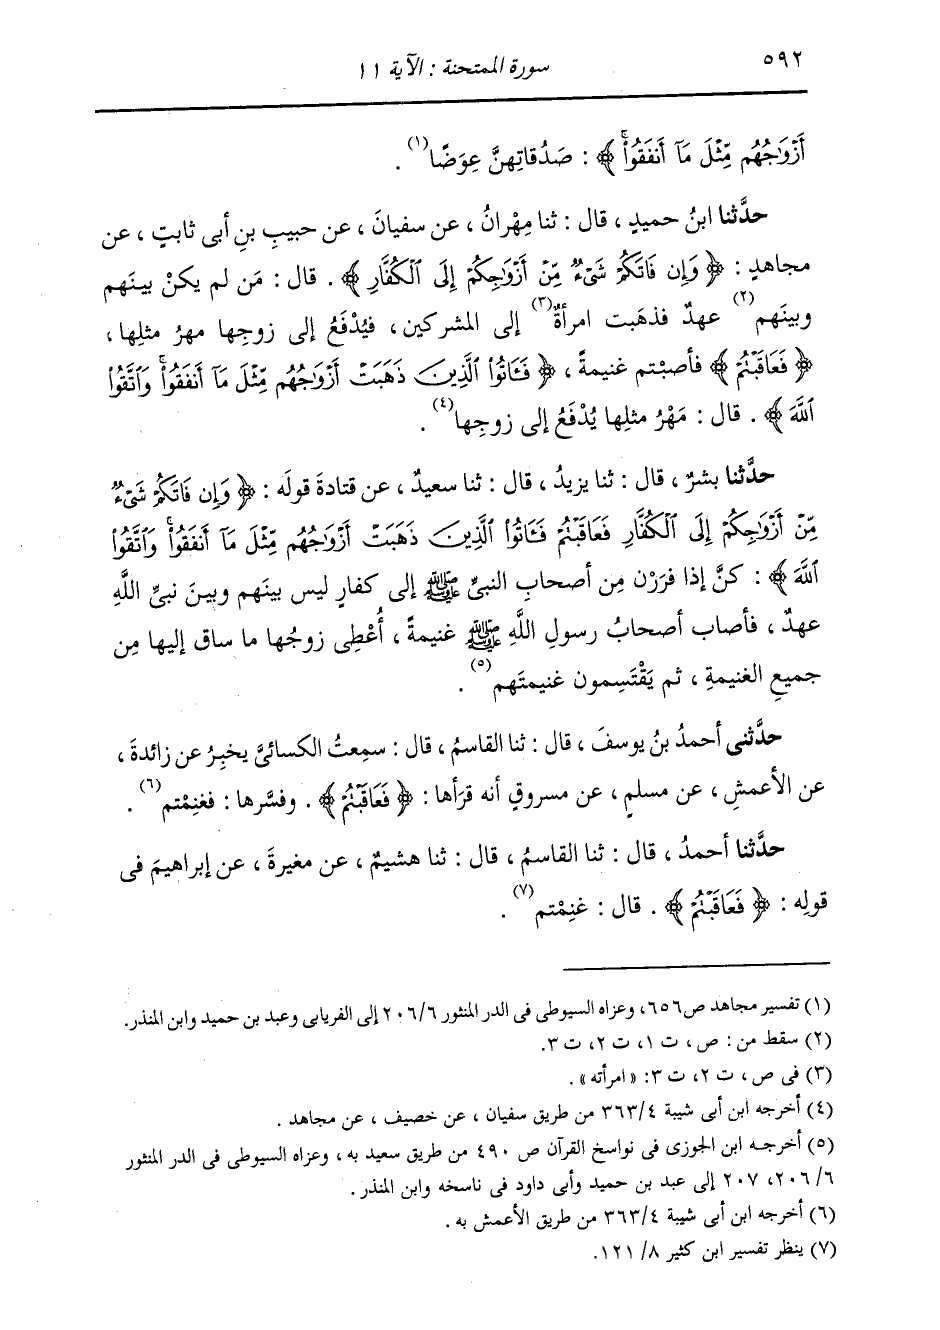 ٥٩٢
سورة الممتحنة : الآية ١١
أَزْوَٰجُهُم مِّثْلَ مَآ أَنفَقُوا۟ۚ ﴾ : صَدُقاتِهنَّ عِوَضًا(١) .
حدَّثنا ابنُ حميدٍ ، قال : ثنا مِهْرانُ ، عن سفيانَ ، عن حبيبِ بنِ أبى ثابتٍ ، عن
مجاهدٍ : ﴿ وَإِن فَاتَكُمْ شَىْءٌ مِّنْ أَزْوَٰجِكُمْ إِلَى ٱلْكُفَّارِ ﴾ . قال : مَن لم يكنْ بينَهم
وبينَهم(٢) عهدٌ فذهَبت امرأةٌ(٣) إلى المشركين ، فيُدْفَعُ إلى زوجِها مهرُ مثلِها ،
﴿ فَعَاقَبْتُمْ ﴾ فأصبْتم غنيمةً ، ﴿ فَـَٔاتُوا۟ ٱلَّذِينَ ذَهَبَتْ أَزْوَٰجُهُم مِّثْلَ مَآ أَنفَقُوا۟ۚ وَٱتَّقُوا۟
ٱللَّهَ ﴾ . قال : مَهْرُ مثلِها يُدْفَعُ إلى زوجِها(٤) .
حدَّثنا بشرٌ ، قال : ثنا يزيدُ ، قال : ثنا سعيدٌ ، عن قتادةَ قولَه : ﴿ وَإِن فَاتَكُمْ شَىْءٌ
مِّنْ أَزْوَٰجِكُمْ إِلَى ٱلْكُفَّارِ فَعَاقَبْتُمْ فَـَٔاتُوا۟ ٱلَّذِينَ ذَهَبَتْ أَزْوَٰجُهُم مِّثْلَ مَآ أَنفَقُوا۟ۚ وَٱتَّقُوا۟
ٱللَّهَ ﴾ : كنَّ إذا فرَرْن مِن أصحابِ النبىِّ ﷺ إلى كفارٍ ليس بينَهم وبينَ نبىِّ اللَّهِ
عهدٌ ، فأصاب أصحابُ رسولِ اللَّهِ ﷺ غنيمةً ، أُعْطِى زوجُها ما ساق إليها مِن
جميعِ الغنيمةِ ، ثم يَقْتَسِمون غنيمتَهم(٥) .
حدَّثنى أحمدُ بنُ يوسفَ ، قال : ثنا القاسمُ ، قال : سمِعتُ الكسائىَّ يخبِرُ عن زائدةَ ،
عن الأعمشِ ، عن مسلمٍ ، عن مسروقٍ أنه قرَأها : ﴿ فَعَاقَبْتُمْ ﴾ . وفسَّرها : فغنِمْتم(٦) .
حدَّثنا أحمدُ ، قال : ثنا القاسمُ ، قال : ثنا هشيمٌ ، عن مغيرةَ ، عن إبراهيمَ فى
قولِه : ﴿ فَعَاقَبْتُمْ ﴾ . قال : غنِمْتم(٧) .
(١) تفسير مجاهد ص٦٥٦، وعزاه السيوطى فى الدر المنثور ٢٠٦/٦ إلى الفريابى وعبد بن حميد وابن المنذر.
(٢) سقط من : ص ، ت ١، ت ٢، ت ٣.
(٣) فى ص ، ت ٢، ت ٣: « امرأته » .
(٤) أخرجه ابن أبى شيبة ٣٦٣/٤ من طريق سفيان ، عن خصيف ، عن مجاهد .
(٥) أخرجه ابن الجوزى فى نواسخ القرآن ص ٤٩٠ من طريق سعيد به ، وعزاه السيوطى فى الدر المنثور
٢٠٦/٦، ٢٠٧ إلى عبد بن حميد وأبى داود فى ناسخه وابن المنذر .
(٦) أخرجه ابن أبى شيبة ٣٦٣/٤ من طريق الأعمش به .
(٧) ينظر تفسير ابن كثير ١٢١/٨.